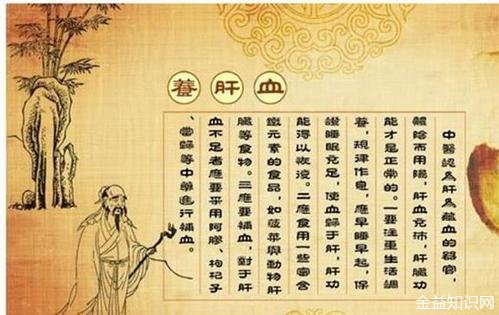 養肝血
中醫認為肝為藏血的器官，
體陰而用陽，肝血充沛，肝臟功
能才是正常的。一要注重生活調
養，規律作息，應早睡早起，保
證睡眠充足，使血歸于肝，肝功
能得以恢復。二應食用一些富含
鐵元素的食品，如菠菜與動物肝
臟等食物。三應要補血，對于肝
血不足者應要采用阿膠、枸杞子
、當歸等中藥進行補血。
金益知识网